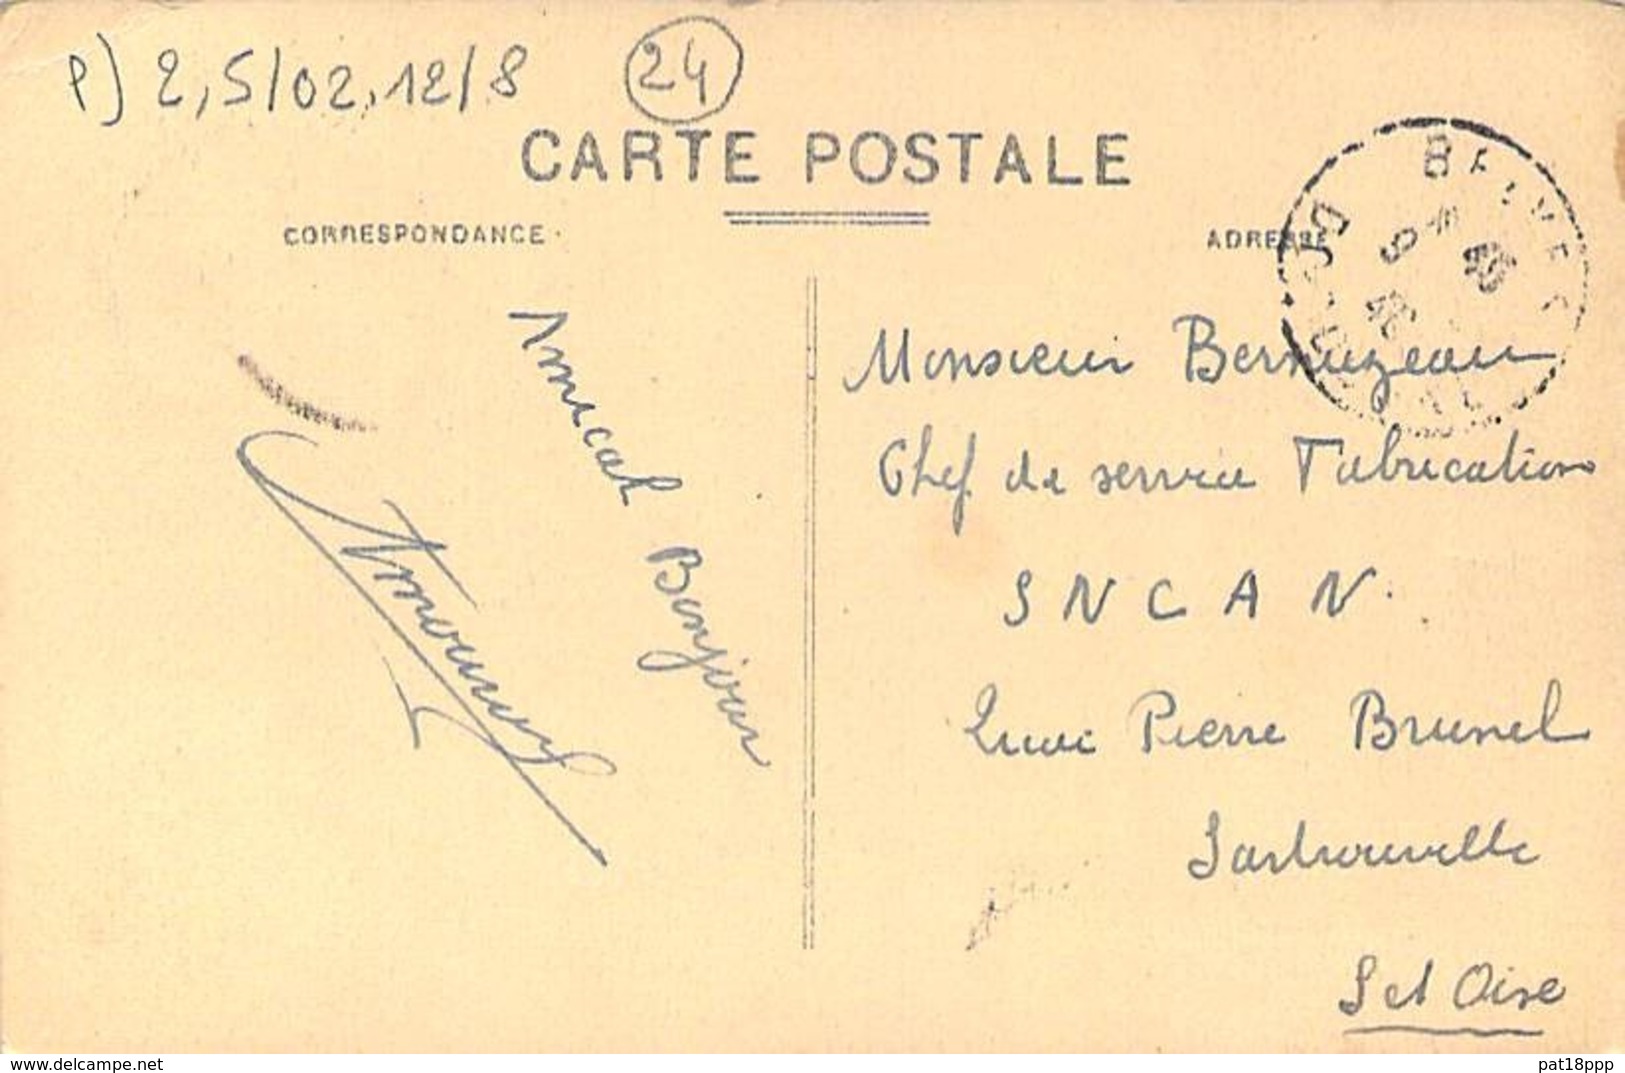 P) 2,5/02.12/8
24
CARTE POSTALE
CORRESPONDANCE
ADRESSE
BELVES
Amical Bonjour
Monsieur Bernuzeau
Chef de service Fabrication
S N C A N.
Quai Pierre Brunel
Sartrouville
S et Oise
www.delcampe.net
pat18ppp